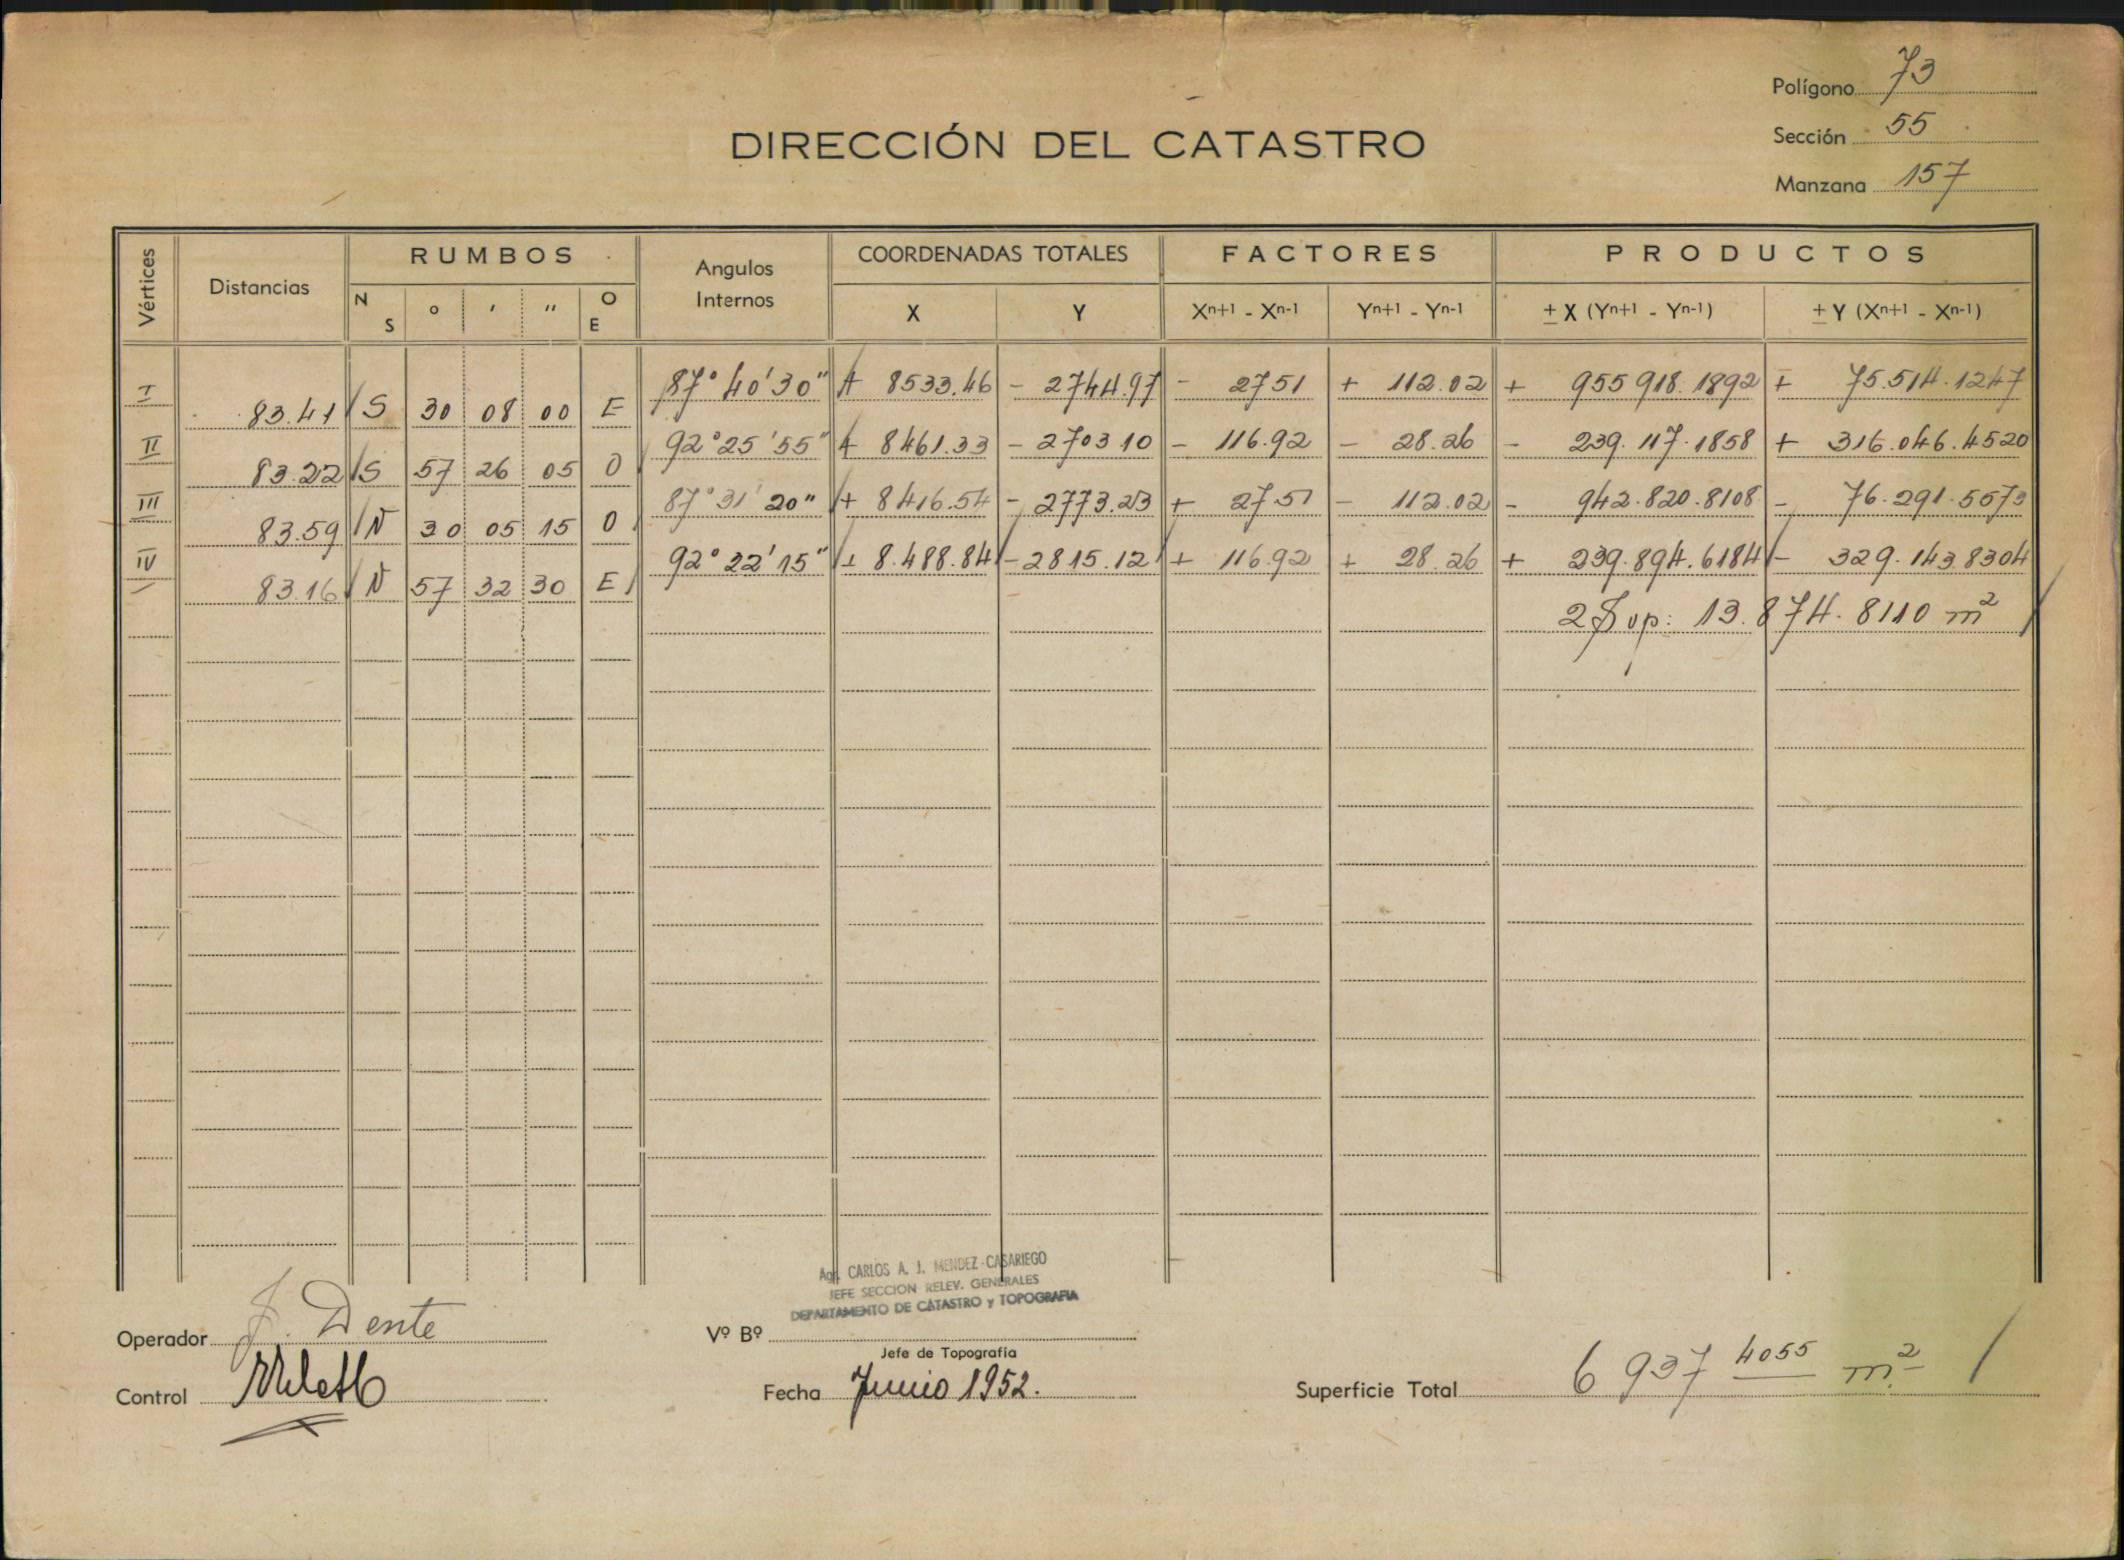 Polígono 73
DIRECCIÓN DEL CATASTRO
Sección 55
Manzana 157
Vértices Distancias RUMBOS Angulos Internos COORDENADAS TOTALES FACTORES PRODUCTOS
N S o ' " O E X Y Xn+1 - Xn-1 Yn+1 - Yn-1 ± X (Yn+1 - Yn-1) ± Y (Xn+1 - Xn-1)
I 87° 40' 30" + 8533.46 - 2744.97 - 27 51 + 112.02 + 955 918.1892 + 75.514.1247
83.41 S 30 08 00 E
II 92° 25' 55" + 8461.33 - 2703 10 - 116.92 - 28.26 - 239.117.1858 + 316.046.4520
83.22 S 57 26 05 O
III 87° 31' 20" + 8416.54 - 2773.23 + 27.51 - 112.02 - 942.820.8108 - 76.291.5573
83.59 N 30 05 15 O
IV 92° 22' 15" + 8.488.84 - 2815.12 + 116.92 + 28.26 + 239.894.6184 - 329.143.8304
83.16 N 57 32 30 E
2 Sup: 13.874.8110 m²
Agr. CARLOS A. J. MENDEZ CASARIEGO
JEFE SECCION RELEV. GENERALES
DEPARTAMENTO DE CATASTRO y TOPOGRAFIA
Operador J. Dente
Vº Bº
Jefe de Topografía
Control
Fecha Junio 1952.
Superficie Total 6 937 4055 m²